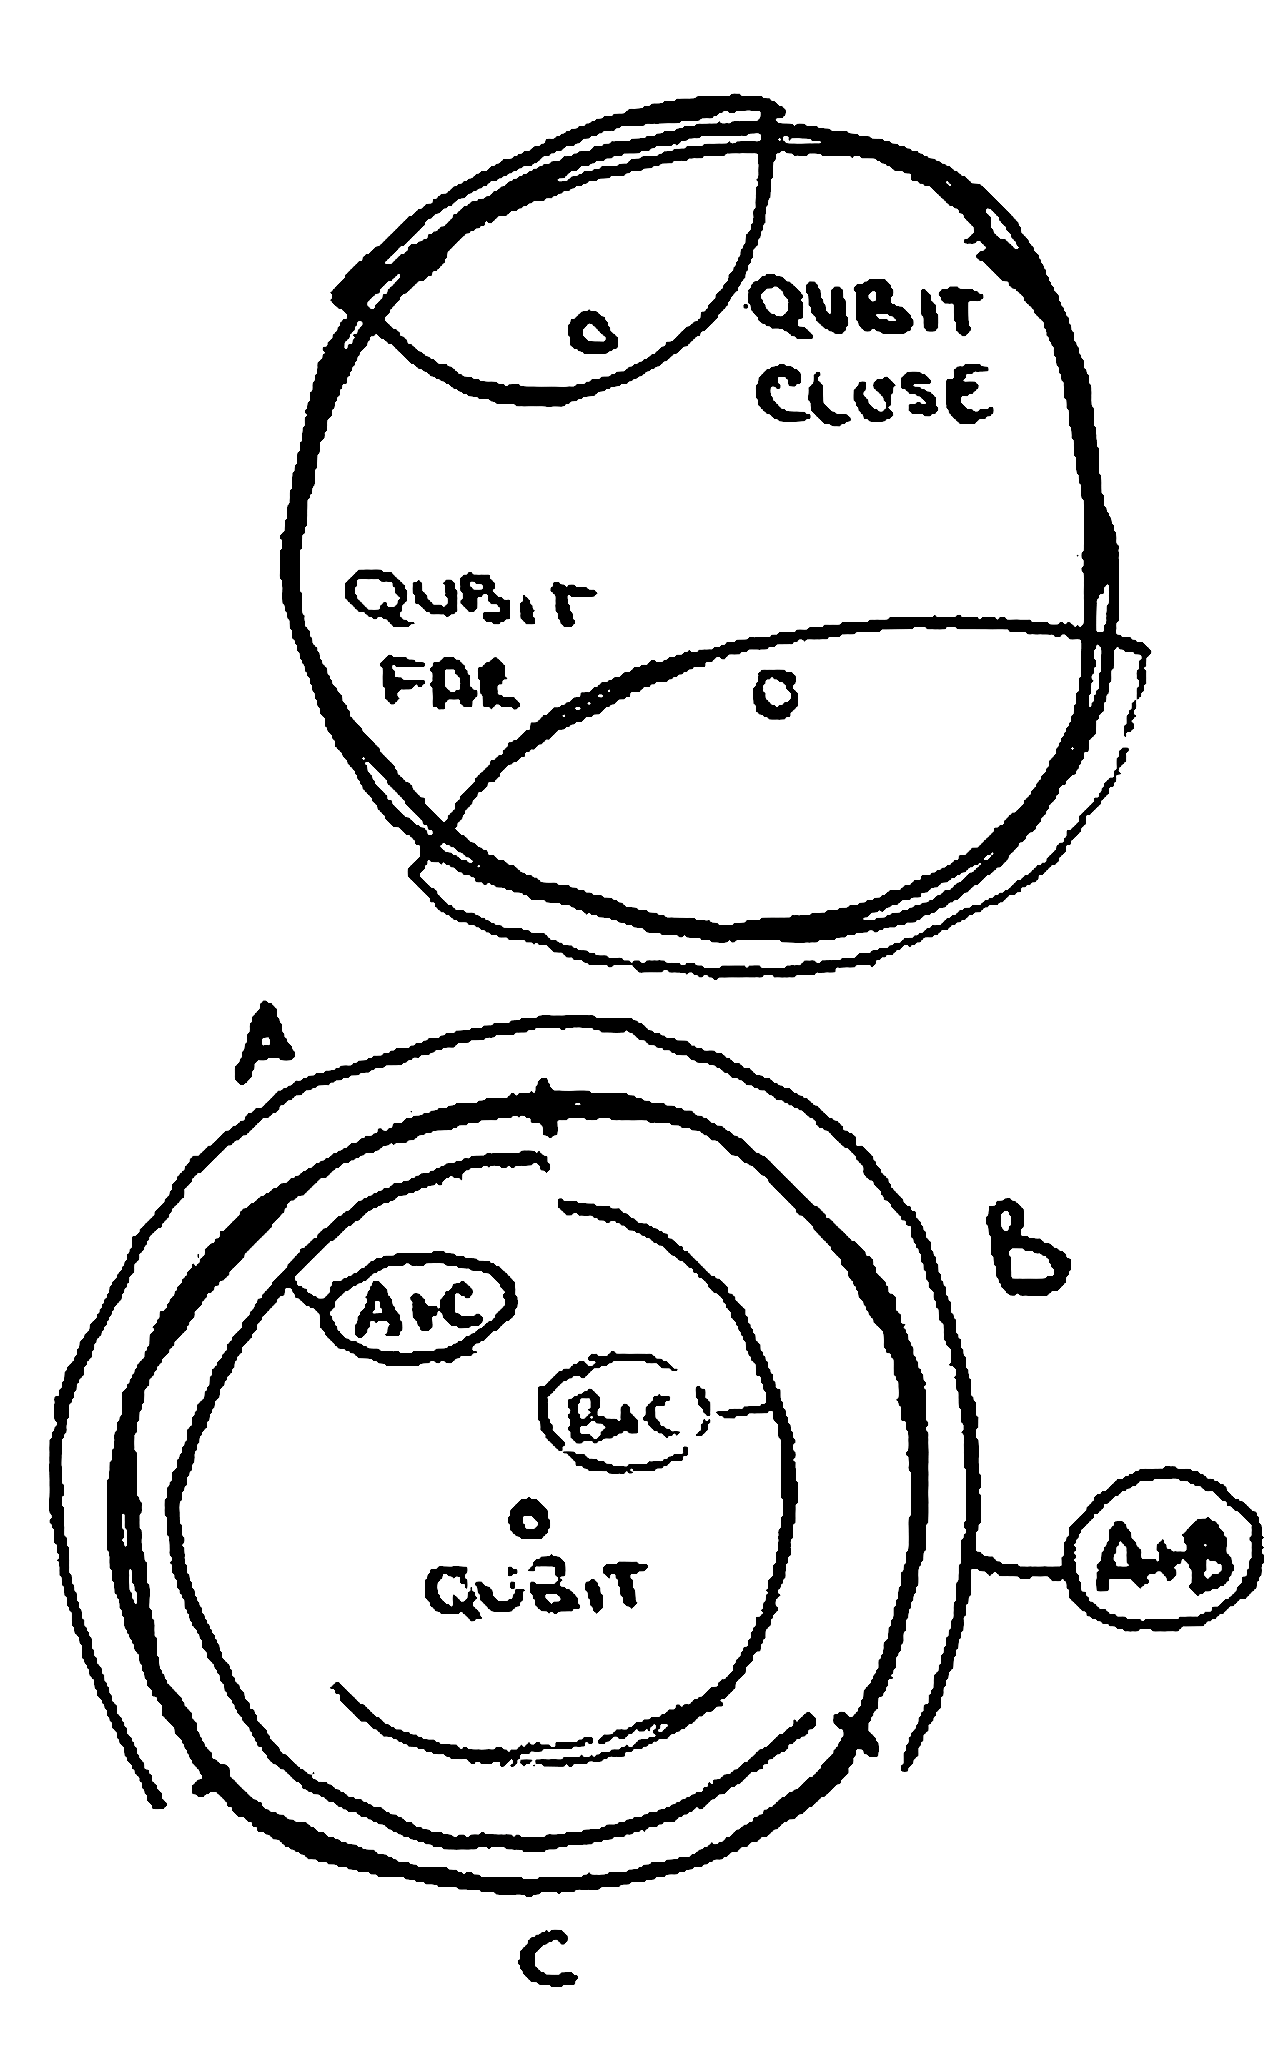 QUBIT
CLOSE
QUBIT
FAR
A
B
A+C
B+C
A+B
QUBIT
C